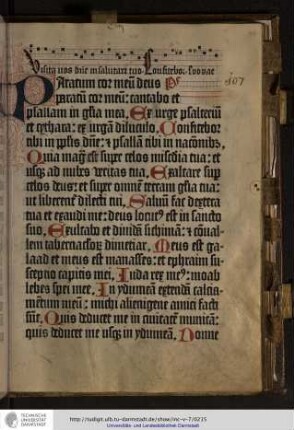 Visita nos dn̄e in salutari tuo. Confitebor. Euouae
107
PAratum cor meū deus Ps
paratū cor meū: cantabo et
psallam in gl̄ia mea. Exurge psalteriū
et cythara: exurgā diluculo. Confitebor
tibi in pplis dn̄e: & psallā tibi in nacōnibꝫ.
Quia magᷓ est super celos misc̄dia tua: et
usqꝫ ad nubes veritas tua. Exaltare sup
celos deus: et super omnē terram gl̄ia tua:
ut liberent᷑ dilecti tui. Saluū fac dextera
tua et exaudi me: deus locutꝰ est in sancto
suo. Exultabo et diuidā sichimā: & cōual-
lem tabernaclorꝫ dimetiar. Meus est ga-
laad et meus est manasses: et ephraim su-
sceptio capitis mei. Iuda rex meꝰ: moab
lebes spei mee. In ydumeā extendā calcia-
mētum meū: michi alienigene amici facti
sūt. Quis deducet me in ciuitatē municā:
quis deducet me usqꝫ in ydumeā. Nonne
TECHNISCHE UNIVERSITÄT DARMSTADT
http://tudigit.ulb.tu-darmstadt.de/show/inc-v-7/0235
Universitäts- und Landesbibliothek Darmstadt